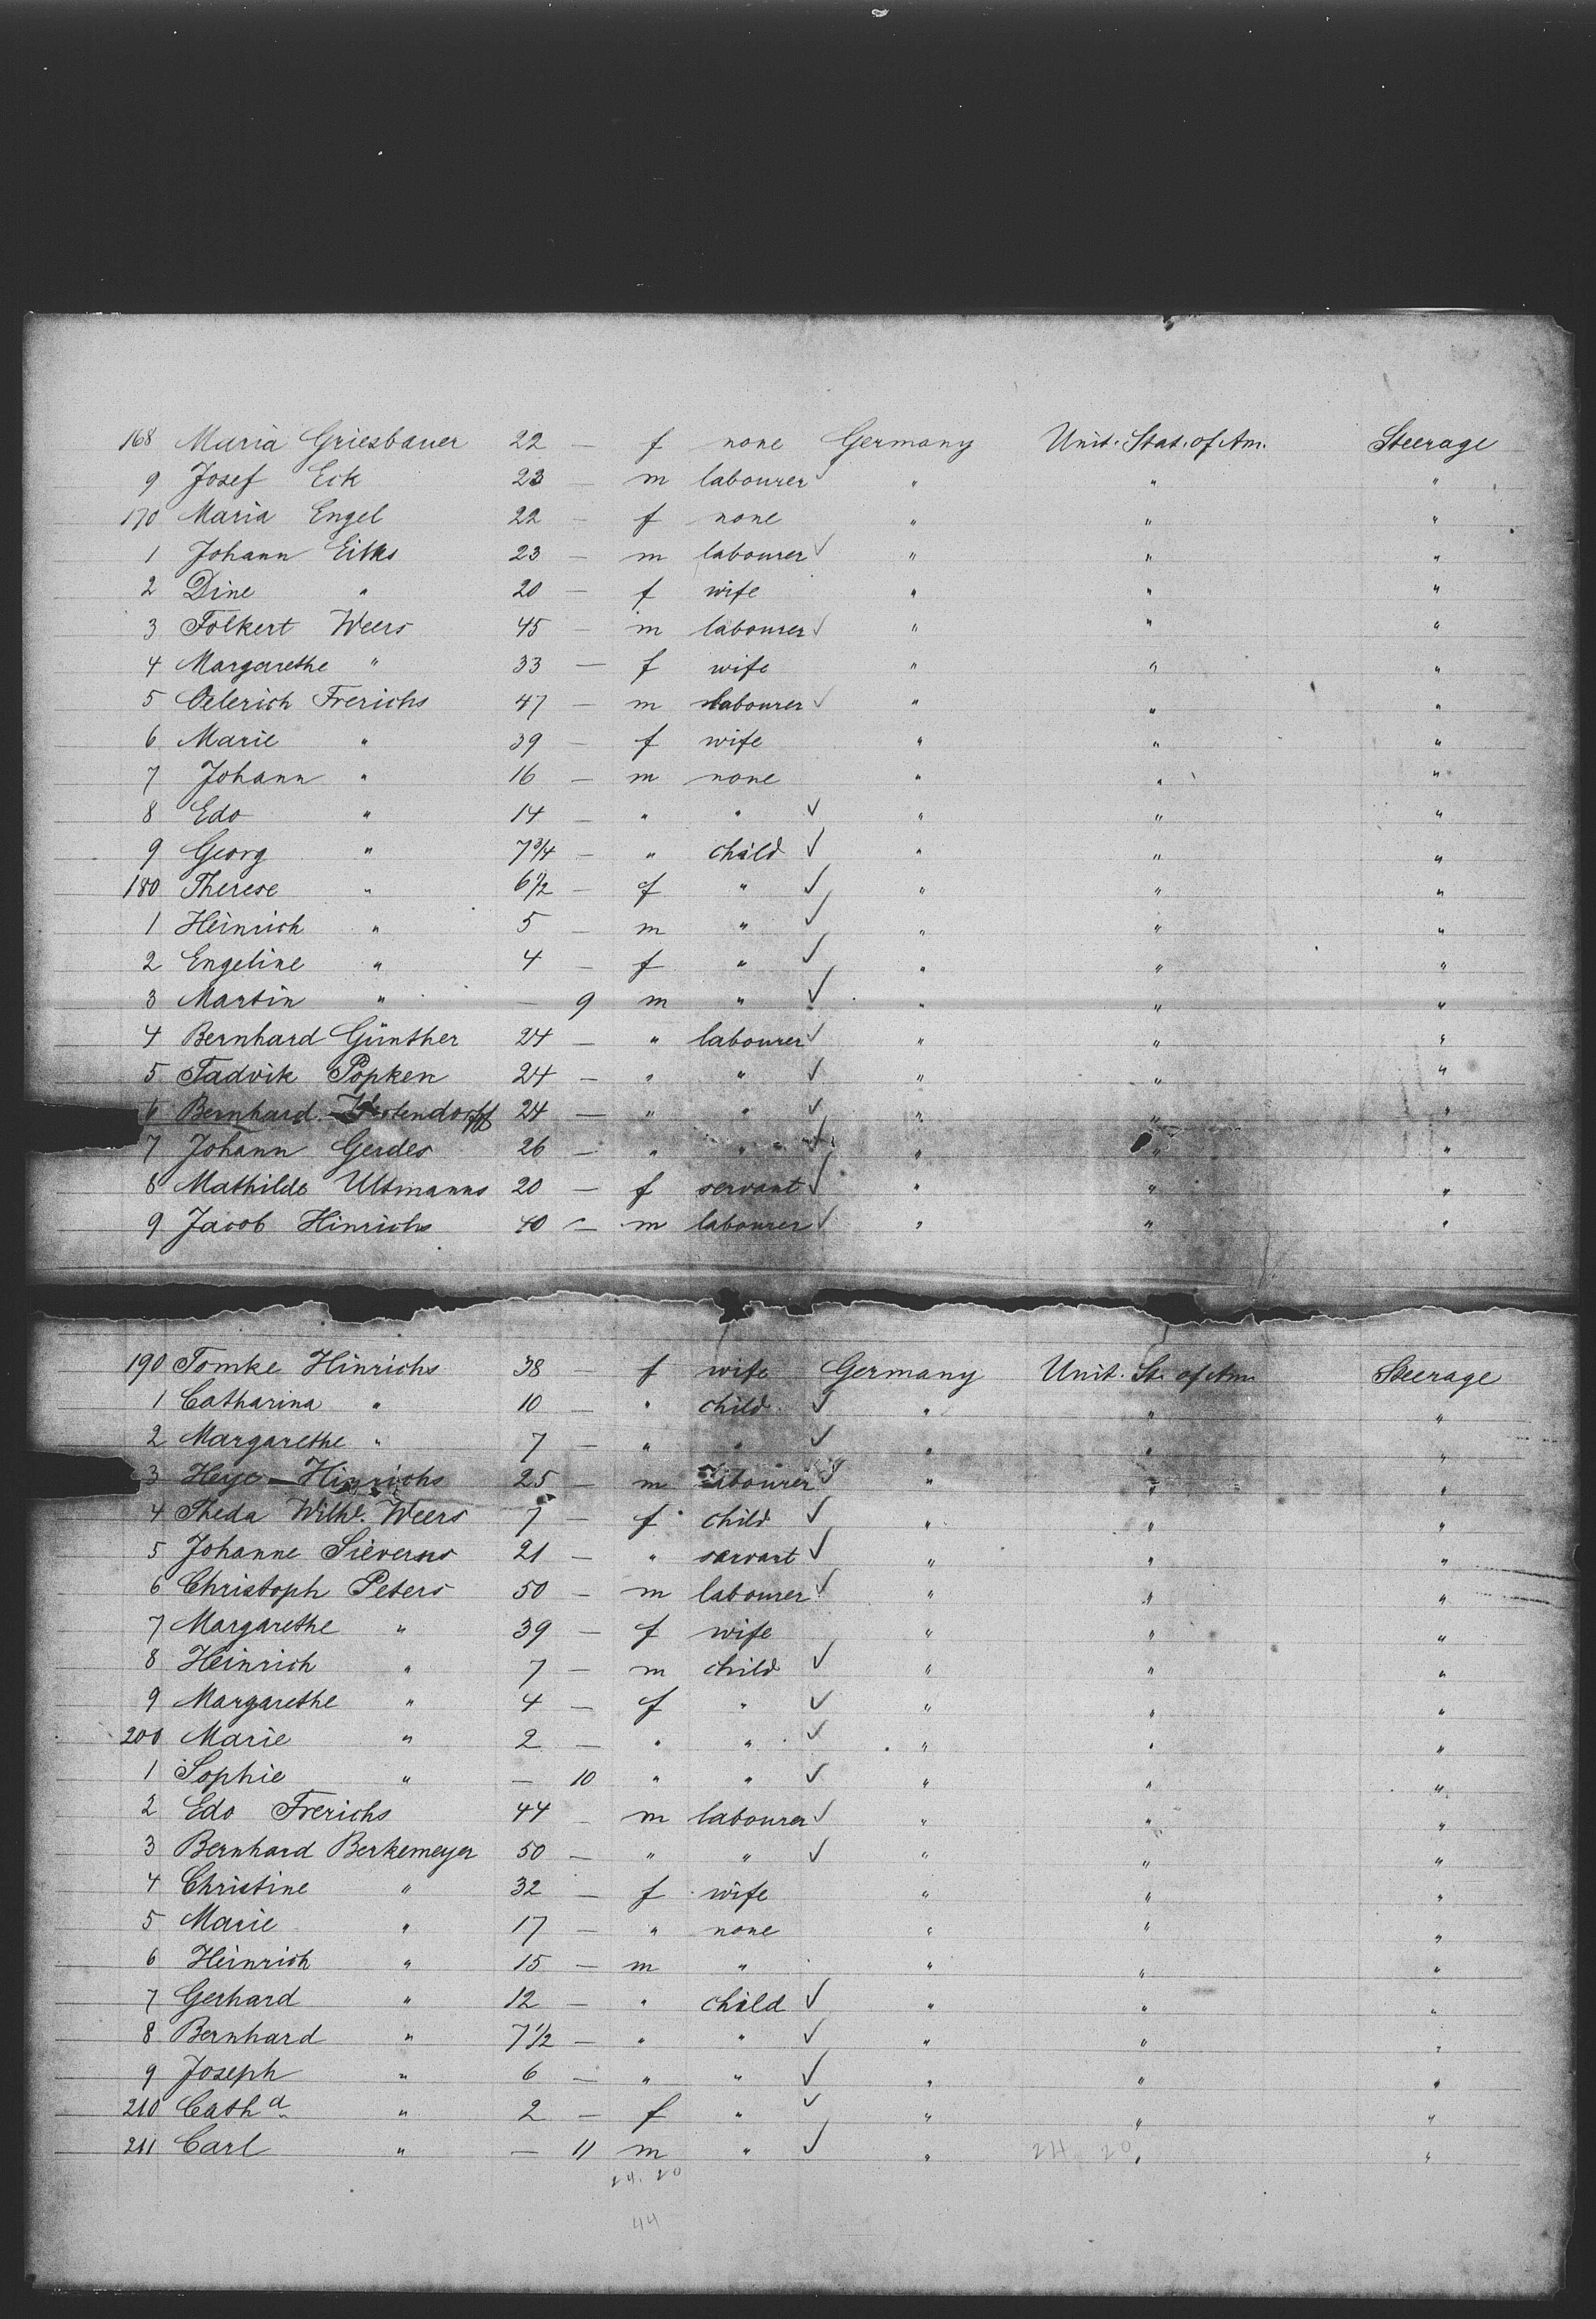 168 Maria Griesbauer 22 — f none Germany Unit. Stat. of Am. Steerage
9 Josef Eck 23 — m labourer ✓ " " "
170 Maria Engel 22 — f none " " "
1 Johann Eilks 23 — m labourer ✓ " " "
2 Dine " 20 — f wife " " "
3 Folkert Weers 45 — m labourer ✓ " " "
4 Margarethe " 33 — f wife " " "
5 Oelerich Frerichs 47 — m labourer ✓ " " "
6 Marie " 39 — f wife " " "
7 Johann " 16 — m none " " "
8 Edo " 14 — " " ✓ " " "
9 Georg " 7 3/4 — " child ✓ " " "
180 Therese " 6 1/2 — f " ✓ " " "
1 Heinrich " 5 — m " ✓ " " "
2 Engeline " 4 — f " ✓ " " "
3 Martin " — 9 m " ✓ " " "
4 Bernhard Günther 24 — " labourer ✓ " " "
5 Tadvik Popken 24 — " " ✓ " " "
6 Bernhard 24 — " " ✓ " " "
7 Johann Gerdes 26 — " " ✓ " " "
8 Mathilde Ultmanns 20 — f servant ✓ " " "
9 Jacob Hinrichs 40 — m labourer ✓ " " "
190 Tomke Hinrichs 38 — f wife Germany Unit. St. of Am. Steerage
1 Catharina " 10 — " child ✓ " " "
2 Margarethe " 7 — " " ✓ " " "
3 Heye Hinrichs 25 — m labourer ✓ " " "
4 Theda Wilhe. Weers 7 — f child ✓ " " "
5 Johanne Sieverns 21 — " servant ✓ " " "
6 Christoph Peters 50 — m labourer ✓ " " "
7 Margarethe " 39 — f wife " " "
8 Heinrich " 7 — m child ✓ " " "
9 Margarethe " 4 — f " ✓ " " "
200 Marie " 2 — " " ✓ " " "
1 Sophie " — 10 " " ✓ " " "
2 Edo Frerichs 44 — m labourer ✓ " " "
3 Bernhard Berkemeyer 50 — " " ✓ " " "
4 Christine " 32 — f wife " " "
5 Marie " 17 — " none " " "
6 Heinrich " 15 — m " " " "
7 Gerhard " 12 — " child ✓ " " "
8 Bernhard " 7 1/2 — " " ✓ " " "
9 Joseph " 6 — " " ✓ " " "
210 Catha " 2 — f " ✓ " " "
211 Carl " — 11 m " ✓ " 24 20 " "
24. 20
44